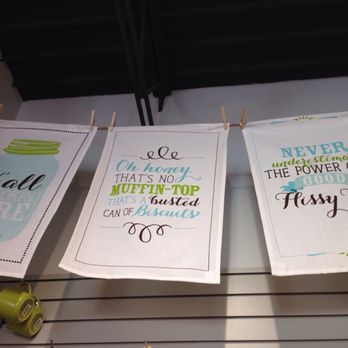 all
RE
Oh honey,
THAT'S NO
MUFFIN-TOP
THAT'S A busted
CAN OF Biscuits
NEVER
underestimate
THE POWER O
GOOD
Hissy